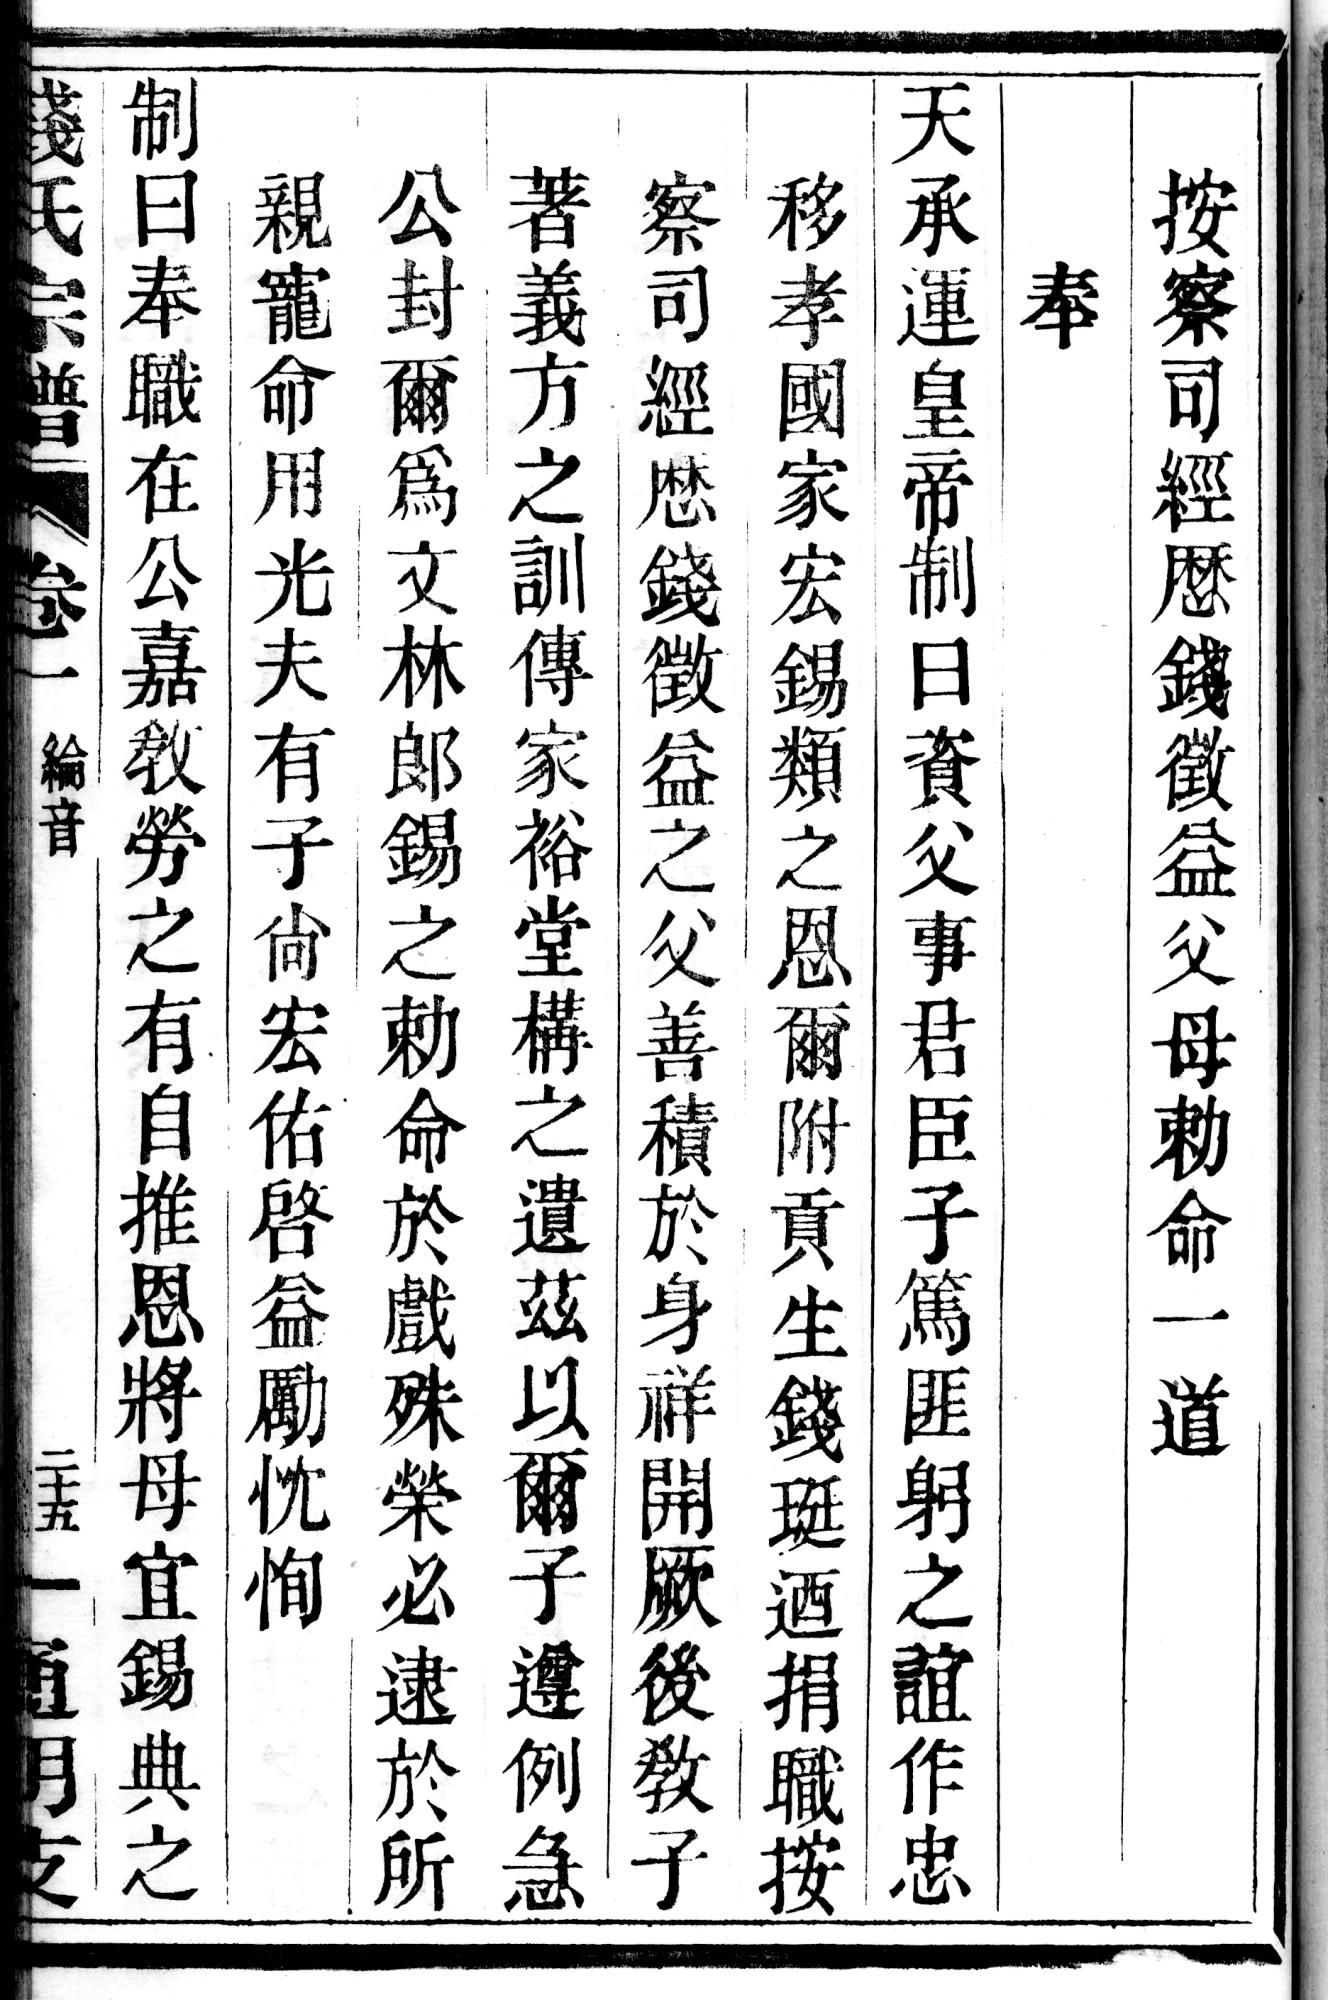 按察司經歴錢徵益父母勅命一道
奉
天承運皇帝制曰資父事君臣子篤匪躬之誼作忠
移孝國家宏錫類之恩爾附貢生錢珽迺捐職按
察司經歴錢徵益之父善積於身祥開厥後敎子
著義方之訓傳家裕堂構之遺茲以爾子遵例急
公封爾爲文林郎錫之勅命於戲殊榮必逮於所
親寵命用光夫有子尙宏佑啓益勵忱恂
制曰奉職在公嘉敎勞之有自推恩將母宜錫典之
錢氏宗譜 卷一 綸音 二十五 一 通明支